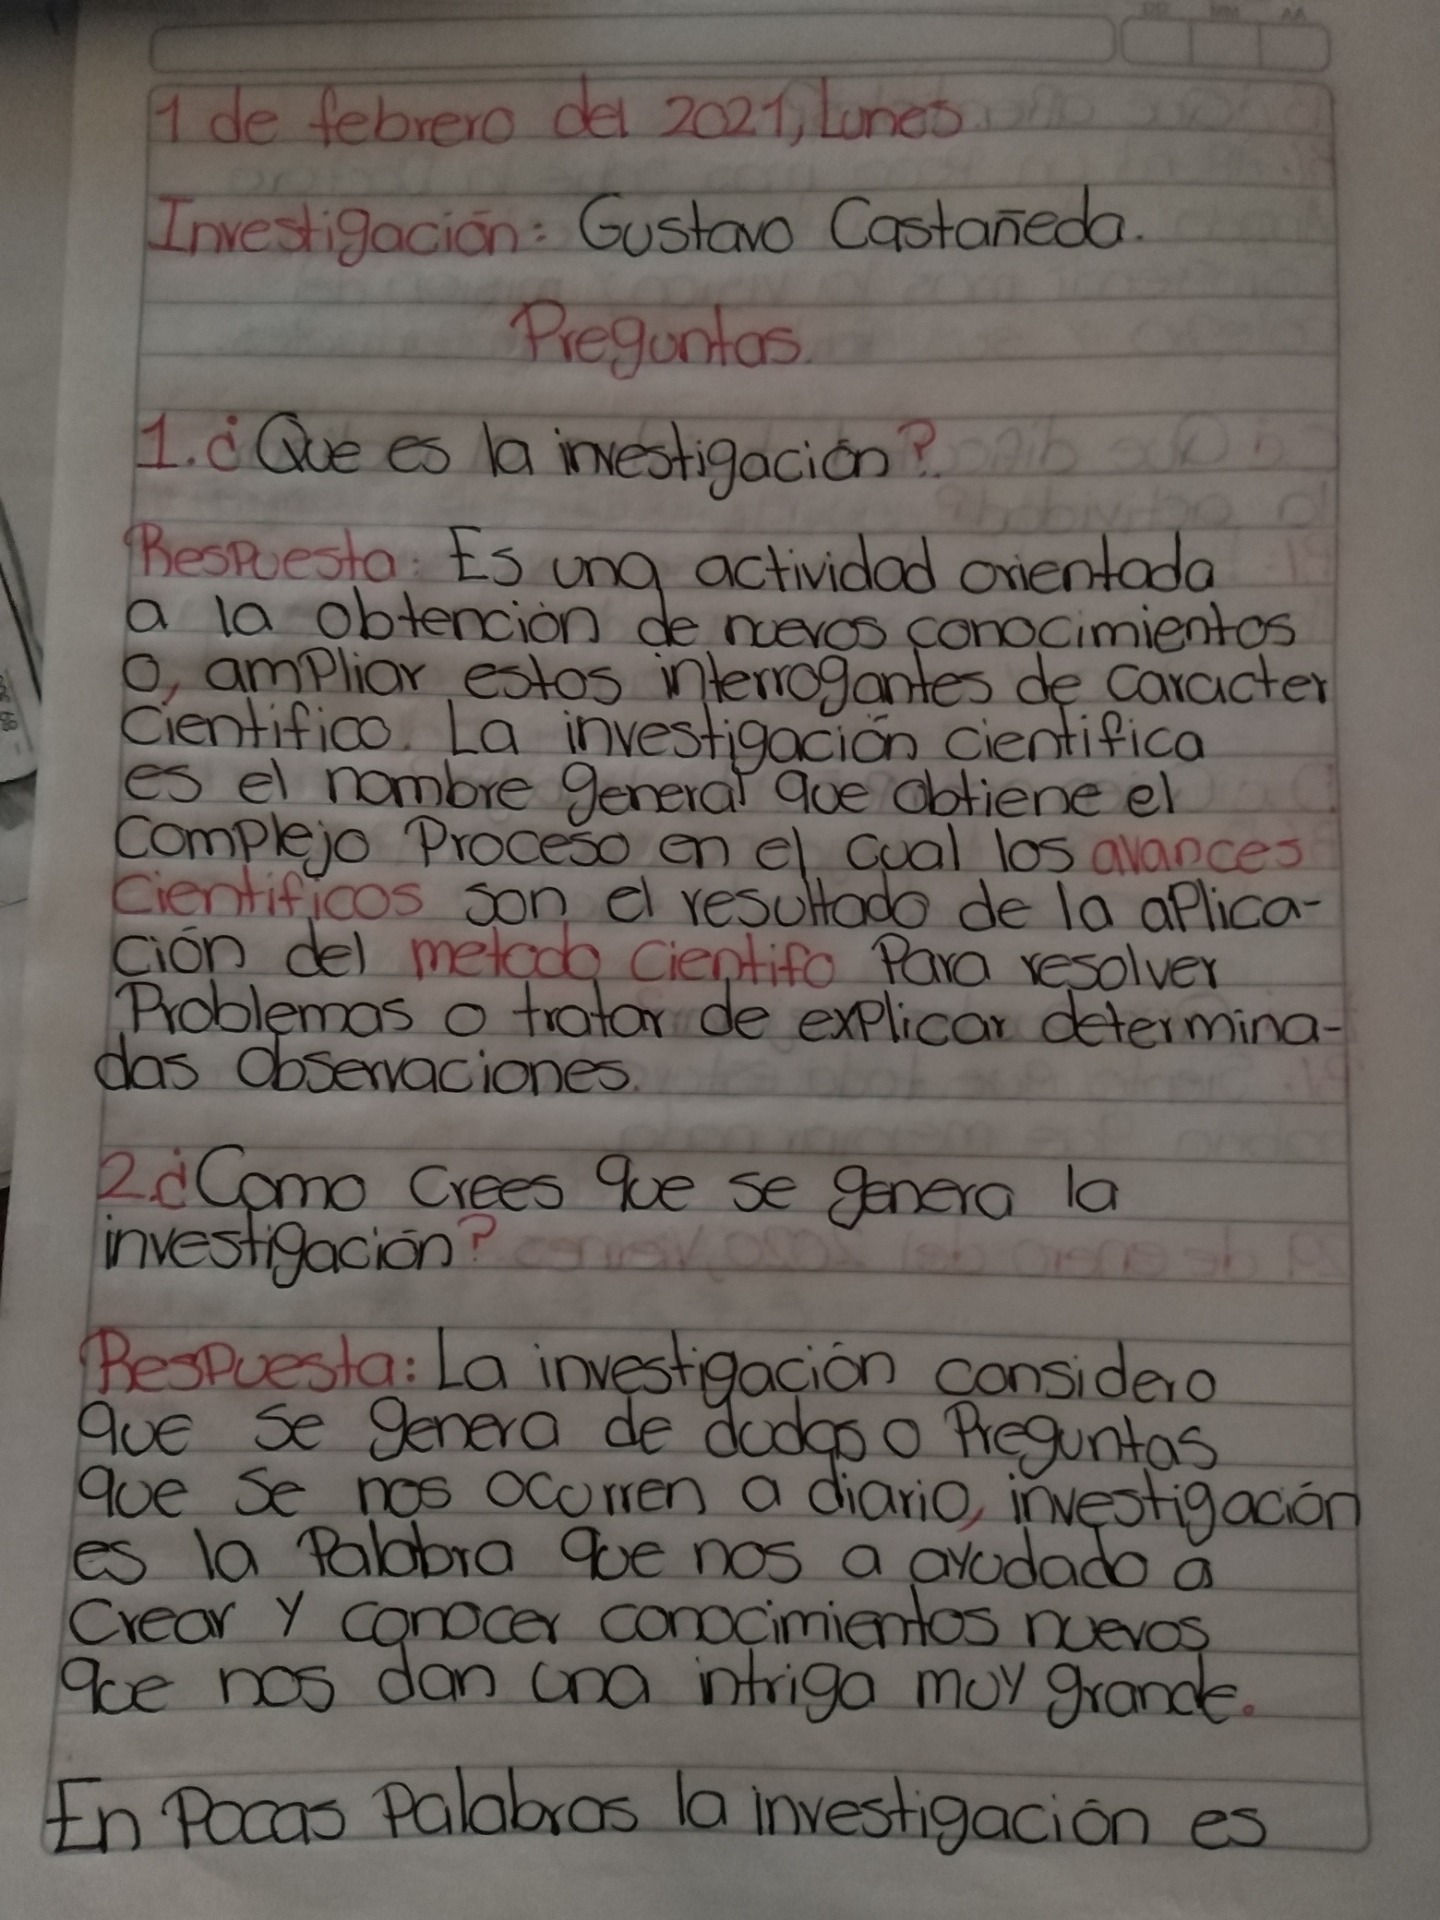 1 de febrero del 2021, Lunes
Investigación: Gustavo Castañeda.
Preguntas.
1. ¿Que es la investigación?
Respuesta: Es una actividad orientada
a la obtención de nuevos conocimientos
o, ampliar estos interrogantes de caracter
Cientifico. La investigación cientifica
es el nombre general que obtiene el
Complejo Proceso en el cual los avances
Cientificos son el resultado de la aplica-
ción del metodo Cientifo Para resolver
Problemas o tratar de explicar determina-
das Observaciones.
2. ¿Como crees que se genera la
investigación?
Respuesta: La investigación considero
que se genera de dudas o Preguntas
que se nos ocurren a diario, investigación
es la Palabra que nos a ayudado a
Crear y conocer conocimientos nuevos
que nos dan una intriga muy grande.
En Pocas Palabras la investigación es